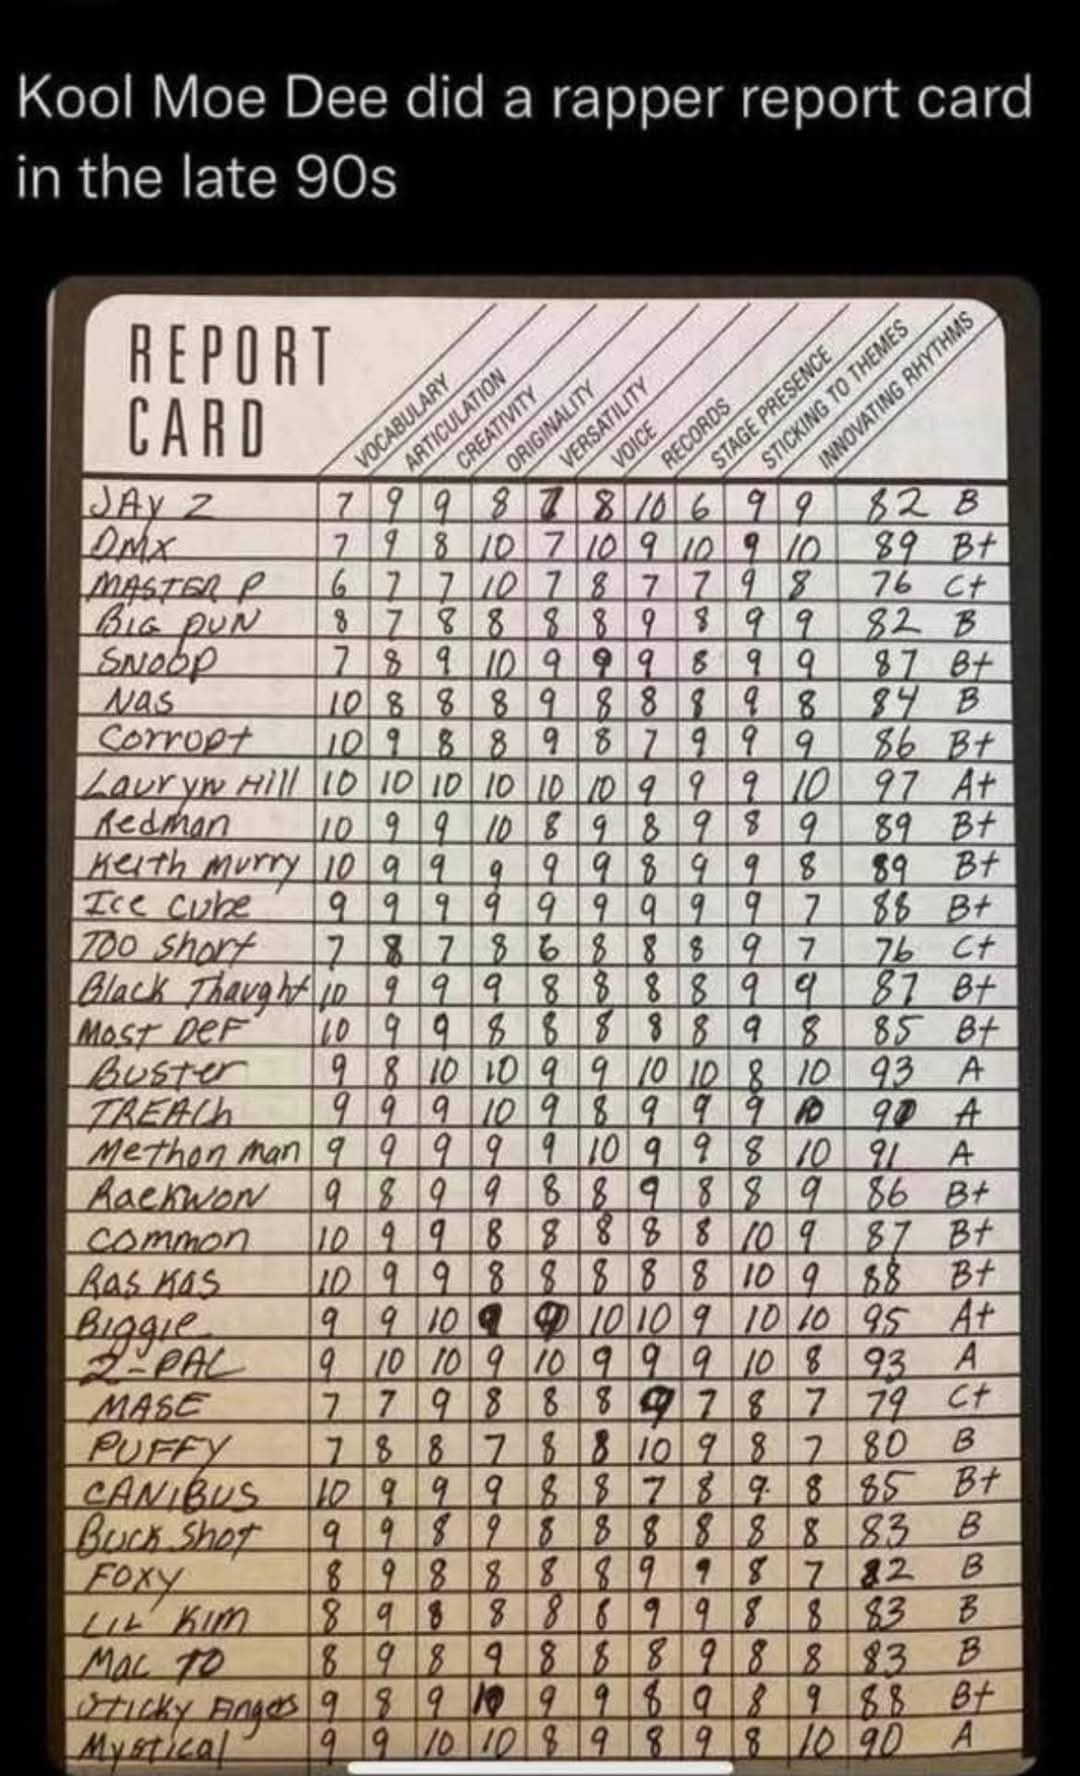 Kool Moe Dee did a rapper report card
in the late 90s
REPORT
CARD
VOCABULARY
ARTICULATION
CREATIVITY
ORIGINALITY
VERSATILITY
VOICE
RECORDS
STAGE PRESENCE
STICKING TO THEMES
INNOVATING RHYTHMS
JAY Z 7 9 9 8 7 8 10 6 9 9 82 B
DMX 7 9 8 10 7 10 9 10 9 10 89 B+
MASTER P 6 7 7 10 7 8 7 7 9 8 76 C+
BIG PUN 8 7 8 8 8 8 9 8 9 9 82 B
SNOOP 7 8 9 10 9 9 9 8 9 9 87 B+
NAS 10 8 8 8 9 8 8 8 9 8 84 B
Corrupt 10 9 8 8 9 8 7 9 9 9 86 B+
Lauryn Hill 10 10 10 10 10 10 9 9 9 10 97 A+
Redman 10 9 9 10 8 9 8 9 8 9 89 B+
Keith Murry 10 9 9 9 9 9 8 9 9 8 89 B+
Ice Cube 9 9 9 9 9 9 9 9 9 7 88 B+
Too Short 7 8 7 8 6 8 8 8 9 7 76 C+
Black Thaught 10 9 9 9 8 8 8 8 9 9 87 B+
MOST DEF 10 9 9 8 8 8 8 8 9 8 85 B+
Buster 9 8 10 10 9 9 10 10 8 10 93 A
TREACh 9 9 9 10 9 8 9 9 9 10 90 A
Methon man 9 9 9 9 9 10 9 9 8 10 91 A
RaeKWON 9 8 9 9 8 8 9 8 8 9 86 B+
Common 10 9 9 8 8 8 8 8 10 9 87 B+
Ras Kas 10 9 9 8 8 8 8 8 10 9 88 B+
Biggie 9 9 10 9 9 10 10 9 10 10 95 A+
2-PAC 9 10 10 9 10 9 9 9 10 8 93 A
MASE 7 7 9 8 8 8 9 7 8 7 79 C+
PUFFY 7 8 8 7 8 8 10 9 8 7 80 B
CANIBUS 10 9 9 9 8 8 7 8 9 8 85 B+
Buck Shot 9 9 8 9 8 8 8 8 8 8 83 B
FOXY 8 9 8 8 8 8 9 9 8 7 82 B
LIL' KIM 8 9 8 8 8 8 9 9 8 8 83 B
Mac 10 8 9 8 9 8 8 8 9 8 8 83 B
Sticky Fingers 9 8 9 10 9 9 8 9 8 9 88 B+
Mystical 9 9 10 10 8 9 8 9 8 10 90 A